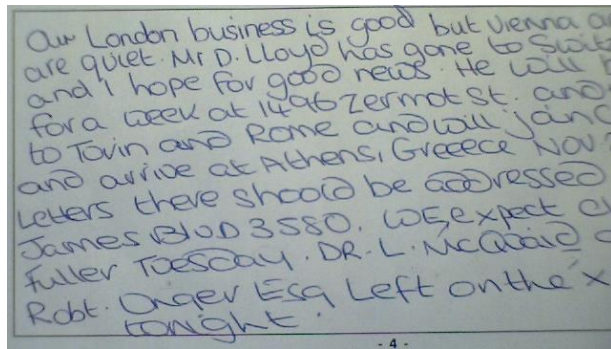 Our London business is good but Vienna a
are quiet. Mr D. Lloyd has gone to Swit
and I hope for good news. He will
for a week at 1496 Zermot St. and
to Tovin and Rome and will join
and arrive at Athens, Greeece Nov
Letters there shoold be addressed
James Blvd 3580. WE expect
Fuller Tuesday. DR. L. McQuaid
Robt. Unger Esq Left on the X
tonight.
- 4 -